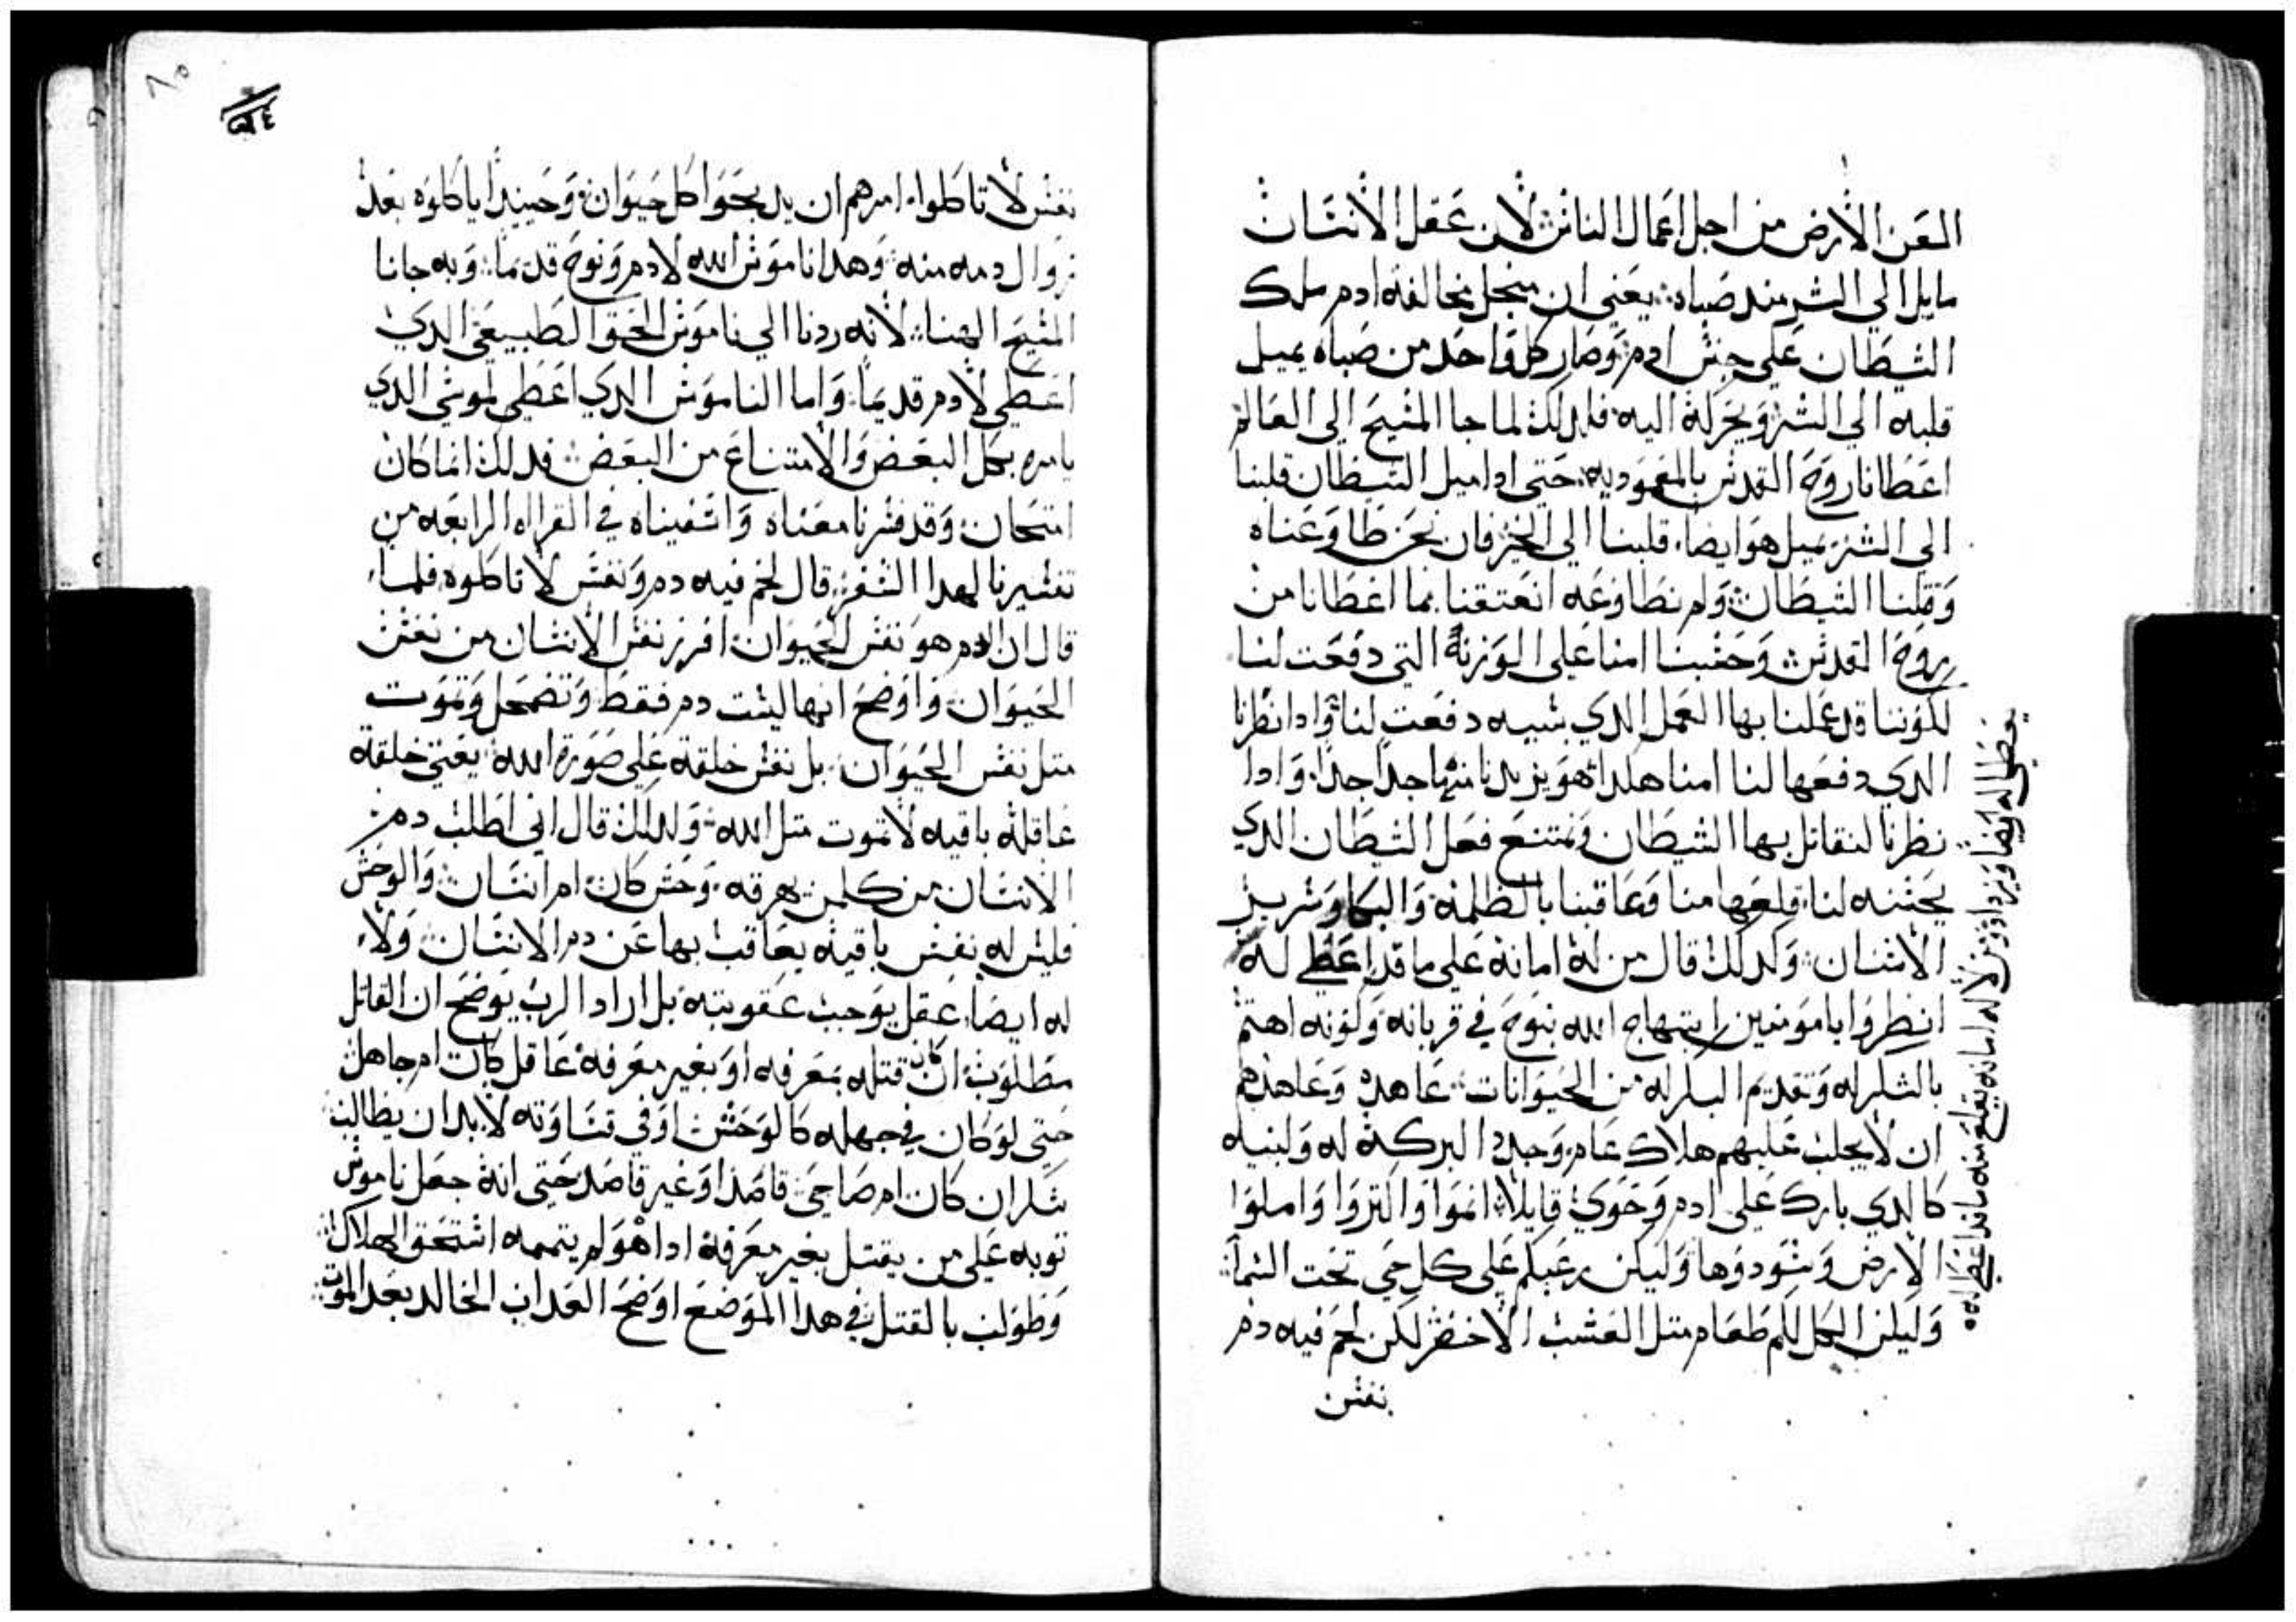 العن الارض من اجل اعمال الناس لان عقل الانسان
مايل الي الشر مند صباه يعني ان منجل مخالفة ادم ملك
الشيطان علي جنس ادم وصار كل واحد من صباه يميل
قلبه الي الشر ويحركه اليه فلدلك لما جا المسيح الي العالم
اعطانا روح القدس بالمعموديه حتي ادا ميل الشيطان قلبنا
الي الشر يميل هو ايضا قلبنا الي الخير فان نحن طاوعناه
وقتلنا الشيطان ولم نطاوعه انعتقنا بما اعطانا من
روح القدس وحسبنا امنا علي الوزنة التي دفعت لنا
لكوننا قد عملنا بها العمل الدي بسببه دفعت لنا وادا نظرنا
الدي دفعها لنا امنا هكدا هو يزيدنا منها جدا جدا وادا
نظرنا لنقاتل بها الشيطان ونمتنع فعل الشيطان الدي
يحسنه لنا قلعها منا وعاقبنا بالظلمة والبكا وشرير
الاسنان وكدلك قال من له امانة علي ما قد اعطي له
يعطي له ايضا ويزداد ومن لا له امانه يقلع منه ما قد اعطي له
انظروا يا مومنين ابتهاج الله بنوح في قربانه وكونه اهتم
بالشكر له وتقديم البكر له من الحيوانات عاهده وعاهدهم
ان لا يجلب عليهم هلاك عام وجدد البركة له ولبنيه
كالدي بارك علي ادم وحوي قايلا انموا واكتروا واملوا
الارض وسودوها وليكن رعبكم علي كل حي تحت السما
وليكن الكل لكم طعام متل العشب الاخضر لكن لحم فيه دم
نفس
نفس لا تاكلوا امرهم ان يدبحوا كل حيوان وحينيدا ياكلوه بعد
زوال دمه منه وهدا ناموس الله لادم ونوح قديما وبه جانا
المسيح الهنا لانه ردنا الي ناموس الحق الطبيعي الدي
اعطي لادم قديما واما الناموس الدي اعطي لموسي الدي
يامره بحل البعض والامتناع من البعض فدلك انما كان
امتحان وقد فسرنا معناه واشفيناه في القراه الرابعه من
تفسيرنا لهدا السفر قال لحم فيه دم ونفس لا تاكلوه فلما
قال ان الدم هو نفس الحيوان افرز نفس الانسان من نفس
الحيوان واوضح انها ليست دم فقط وتضمحل وتموت
متل نفس الحيوان بل نفس خلقة علي صورة الله يعني خلقة
عاقلة باقيه لا تموت متل الله ولدلك قال اني اطلب دم
الانسان من كلمن يهرقه وحش كان ام انسان والوحش
فليس له نفس باقيه يعاقب بها عن دم الانسان ولا
له ايضا عقل يوجب عقوبته بل اراد الرب يوضح ان القاتل
مطلوب ان كان قتله بمعرفه او بغير معرفة عاقل كان ام جاهل
حتي لو كان في جهله كالوحش او في قساوته لا بد ان يطالب
سكران كان ام صاحي قاصدا او غير قاصد حتي انه جعل ناموس
توبه علي من يقتل بغير معرفة ادا هو لم يتممه استحق الهلاك
وطولب بالقتل في هدا الموضع اوضح العداب الخالد بعد الموت